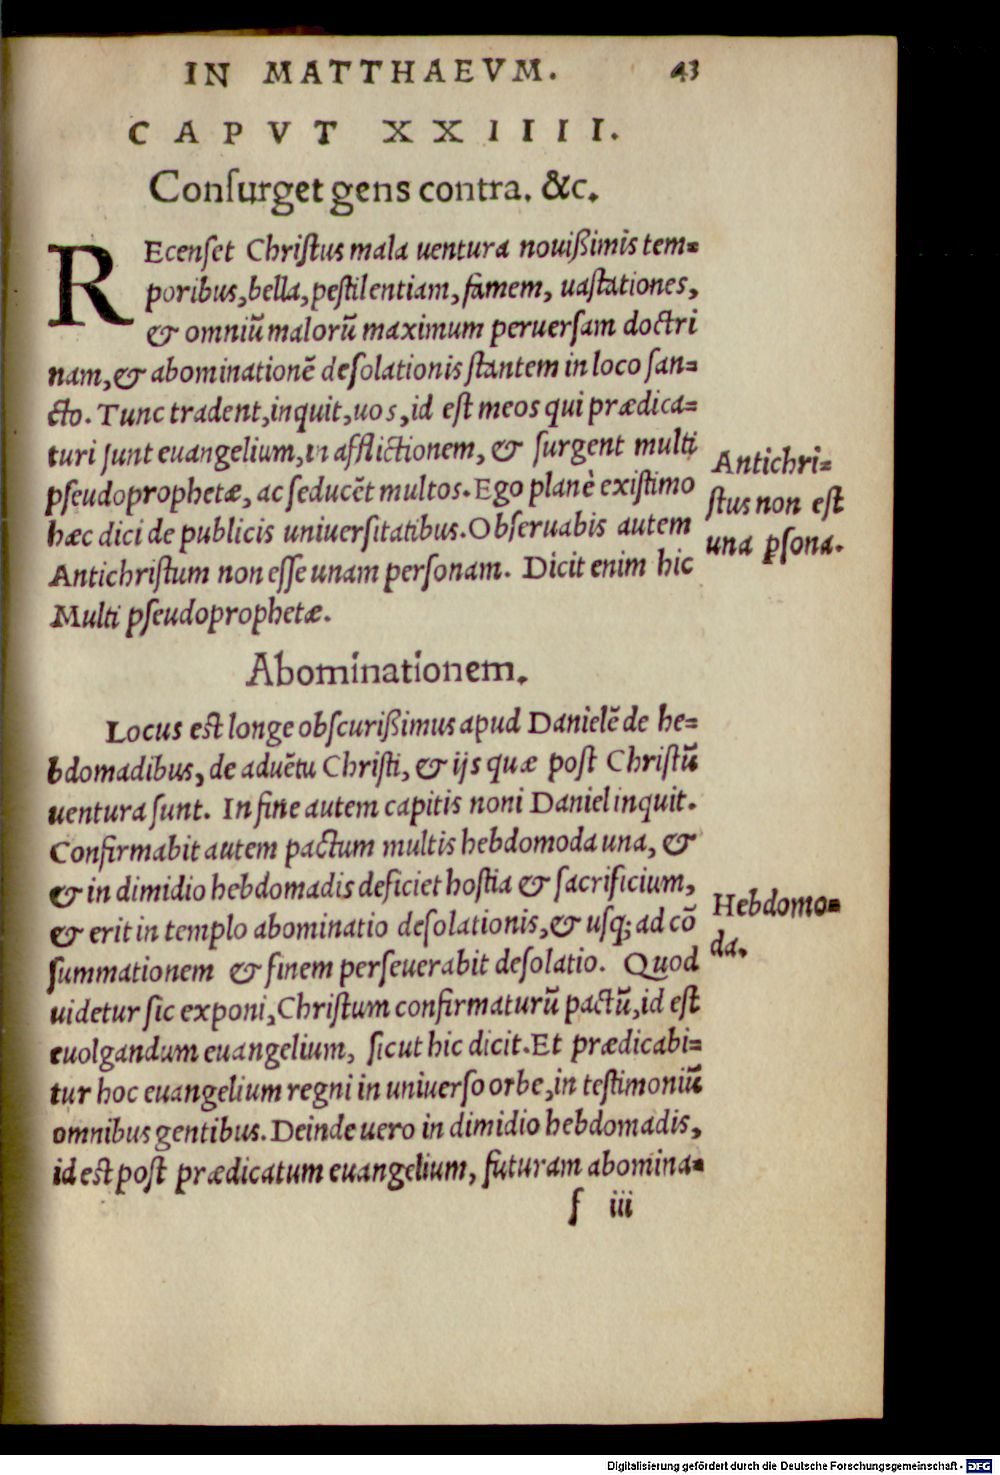 IN MATTHAEVM. 43
CAPVT XXIIII.
Conſurget gens contra. &c.
REcenſet Chriſtus mala uentura nouißimis tem=
poribus, bella, peſtilentiam, famem, uaſtationes,
& omniū malorū maximum peruerſam doctri
nam, & abominationē deſolationis ſtantem in loco ſan=
cto. Tunc tradent, inquit, uos, id eſt meos qui prædica=
turi ſunt euangelium, in afflictionem, & ſurgent multi
pſeudoprophetæ, ac ſeducēt multos. Ego planè exiſtimo
hæc dici de publicis uniuerſitatibus. Obſeruabis autem
Antichriſtum non eſſe unam perſonam. Dicit enim hic
Multi pſeudoprophetæ.
Antichri=
ſtus non eſt
una ꝑſona.
Abominationem.
Locus eſt longe obſcurißimus apud Danielē de he=
bdomadibus, de aduētu Chriſti, & ijs quæ poſt Chriſtū
uentura ſunt. In fine autem capitis noni Daniel inquit.
Confirmabit autem pactum multis hebdomoda una, &
& in dimidio hebdomadis deficiet hoſtia & ſacrificium,
& erit in templo abominatio deſolationis, & uſq; ad cō
ſummationem & finem perſeuerabit deſolatio. Quod
uidetur ſic exponi, Chriſtum confirmaturū pactū, id eſt
euolgandum euangelium, ſicut hic dicit. Et prædicabi=
tur hoc euangelium regni in uniuerſo orbe, in teſtimoniū
omnibus gentibus. Deinde uero in dimidio hebdomadis,
id eſt poſt prædicatum euangelium, futuram abomina=
Hebdomo=
da.
ſ iii
Digitalisierung gefördert durch die Deutsche Forschungsgemeinschaft - DFG